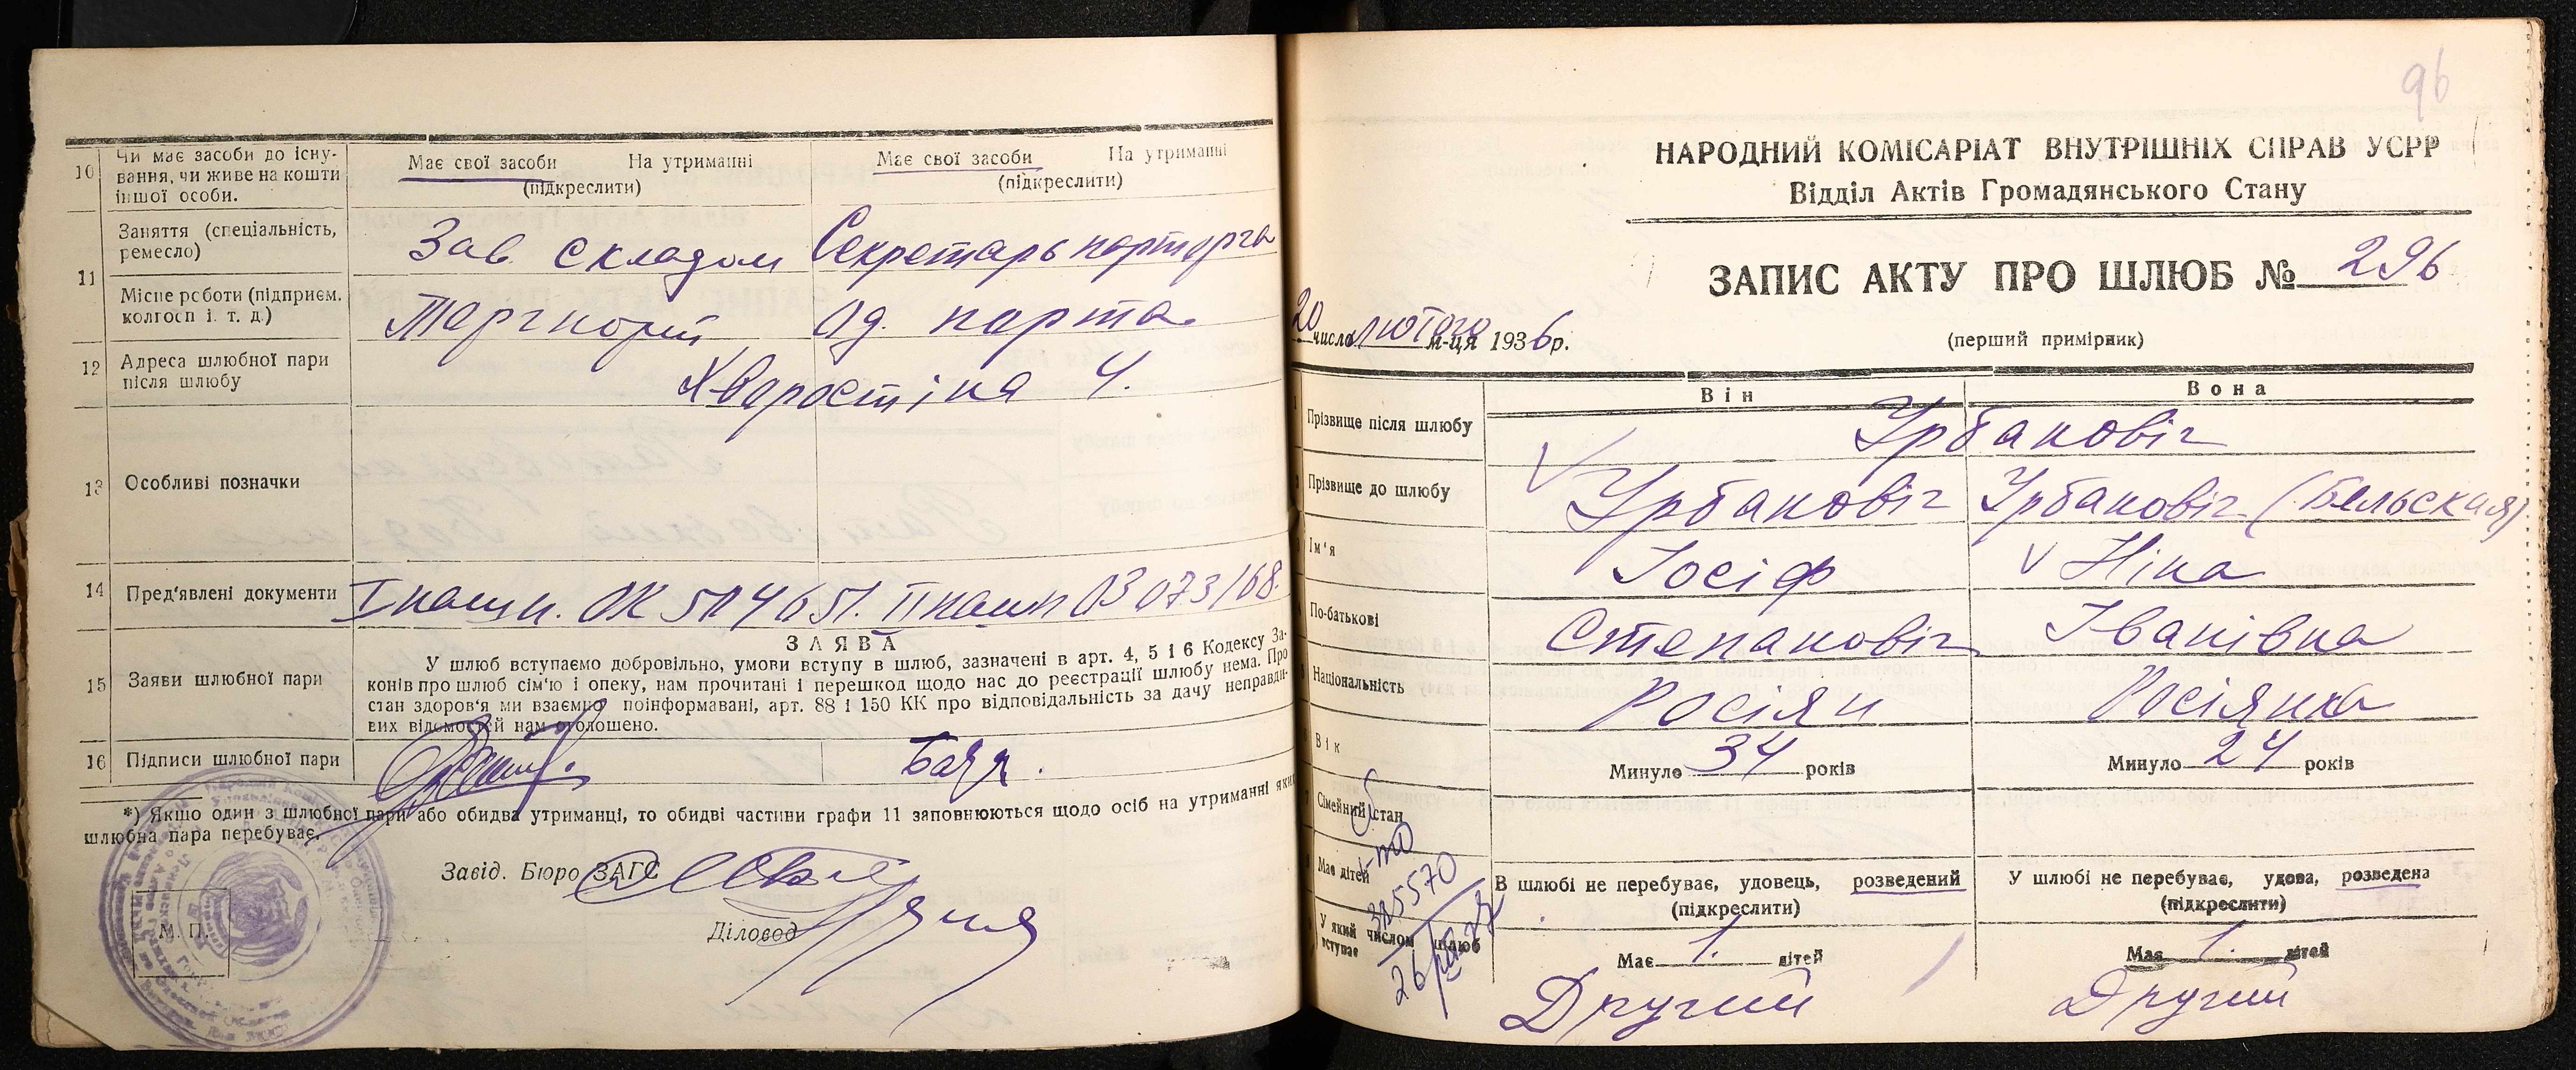 10 Чи має засоби до існу-
вання, чи живе на кошти
іншої особи.
Має свої засоби На утриманні
(підкреслити)
Має свої засоби На утриманні
(підкреслити)
11 Заняття (спеціальність,
ремесло)
Зав складом Секретарь парторга
Місце роботи (підприєм.
колгосп і. т. д.)
Торгпорт Од. порта
12 Адреса шлюбної пари
після шлюбу
Хваростіна 4.
13 Особливі позначки
14 Пред'явлені документи
15 Заяви шлюбної пари
ЗАЯВА
У шлюб вступаємо добровільно, умови вступу в шлюб, зазначені в арт. 4, 5 і 6 Кодексу За-
конів про шлюб сім'ю і опеку, нам прочитані і перешкод щодо нас до реєстрації шлюбу нема. Про
стан здоров'я ми взаємно поінформавані, арт. 88 і 150 КК про відповідальність за дачу неправди-
вих відомостей нам оголошено.
16 Підписи шлюбної пари
*) Якшо один з шлюбної пари або обидва утриманці, то обидві частини графи 11 заповнюються щодо осіб на утриманні яких
шлюбна пара перебуває.
Завід. Бюро ЗАГС
Діловод
М. П.
96
НАРОДНИЙ КОМІСАРІАТ ВНУТРІШНІХ СПРАВ УСРР
Відділ Актів Громадянського Стану
ЗАПИС АКТУ ПРО ШЛЮБ № 296
20 числа лютого м-ця 1936 р.
(перший примірник)
Він Вона
Прізвище після шлюбу
Урбановіч
Прізвище до шлюбу
Урбановіч Урбановіч (Бельская)
Ім'я
Іосіф Ніна
По-батькові
Степановіч Іванівна
Національність
Росіян Росіянка
Вік
Минуло 34 років
Минуло 24 років
Сімейний стан
В шлюбі не перебуває, удовець, розведений
(підкреслити)
У шлюбі не перебуває, удова, розведена
(підкреслити)
Має дітей
Має 1. дітей
Має 1. дітей
У який числом шлюб
вступає
Другий Другий